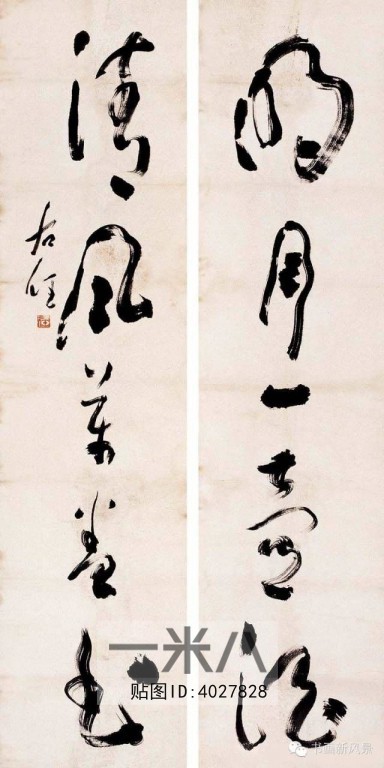 明月一壶酒
清风万卷书
右任
一米八
贴图ID:4027828
书画新风景